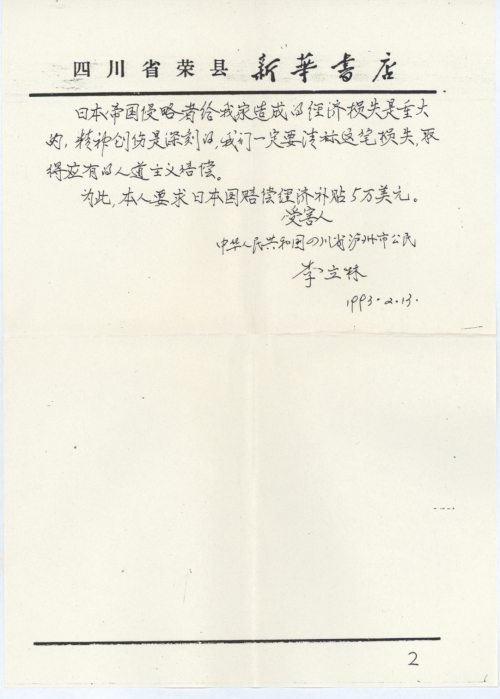 四川省荣县 新華書店
日本帝国侵略者给我家造成的经济损失是重大
的,精神创伤是深刻的,我们一定要清标这笔损失,取
得应有的人道主义赔偿。
为此,本人要求日本国赔偿经济补贴5万美元。
受害人
中华人民共和国四川省泸州市公民
李立林
1993.2.13.
2